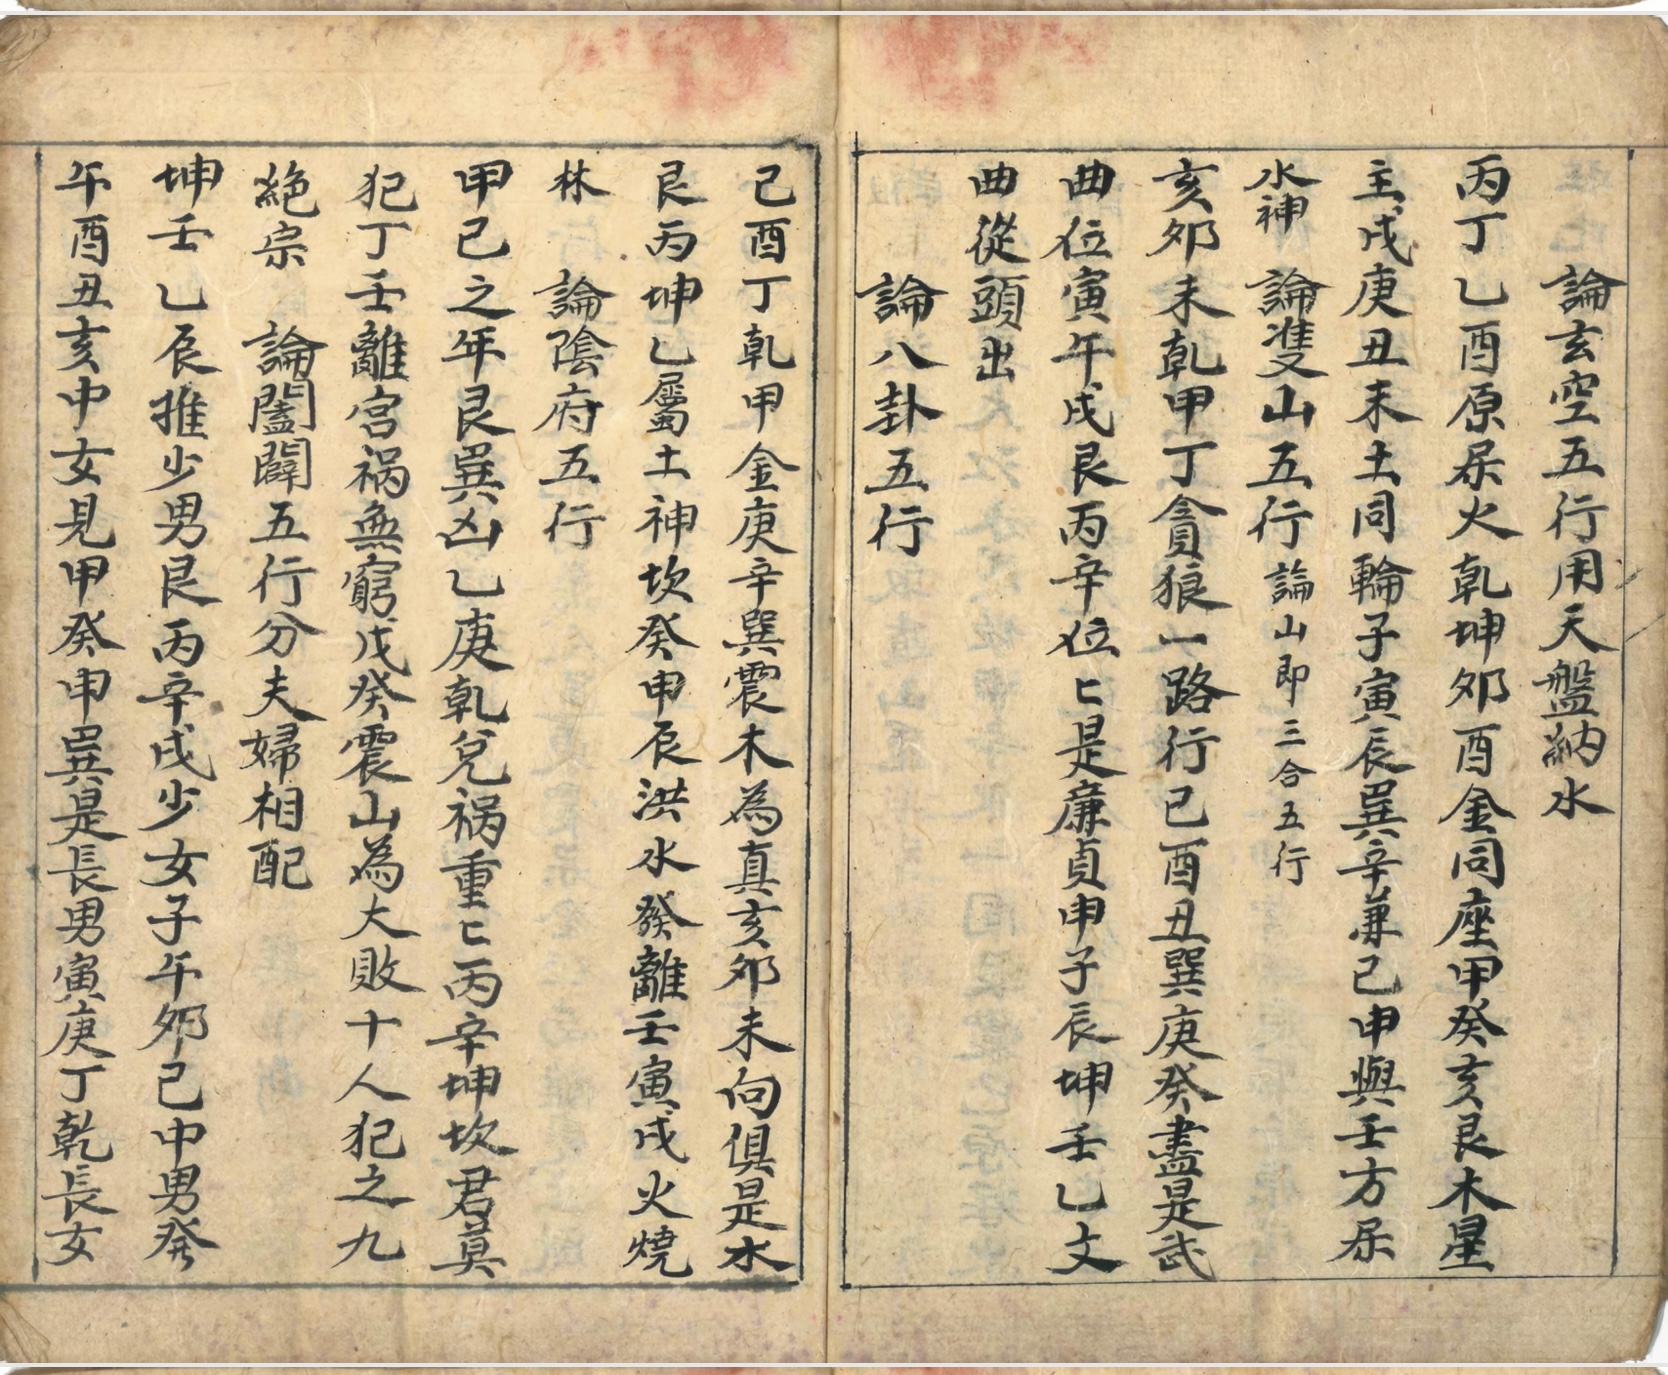 論玄空五行用天盤納水
丙丁乙酉原屬火乾坤卯酉金同座甲癸亥艮木星
主戌庚丑未土同輪子寅辰巽辛兼己申與壬方屬
水神　論雙山五行論山即三合五行
亥卯未乾甲丁貪狼一路行巳酉丑巽庚癸盡是武
曲位寅午戌艮丙辛位〻是廉貞申子辰坤壬乙文
曲從頭出
論八卦五行
己酉丁乾甲金庚辛巽震木為真亥卯未向俱是水
艮丙坤乙屬土神坎癸申辰洪水發離壬寅戌火燒
林　論陰府五行
甲己之年艮巽凶乙庚乾兌禍重〻丙辛坤坎君莫
犯丁壬離宮禍無窮戊癸震山為大敗十人犯之九
絕宗　論闔闢五行分夫婦相配
坤壬乙辰推少男艮丙辛戌少女子午卯己中男癸
午酉丑亥中女見甲癸申巽是長男寅庚丁乾長女